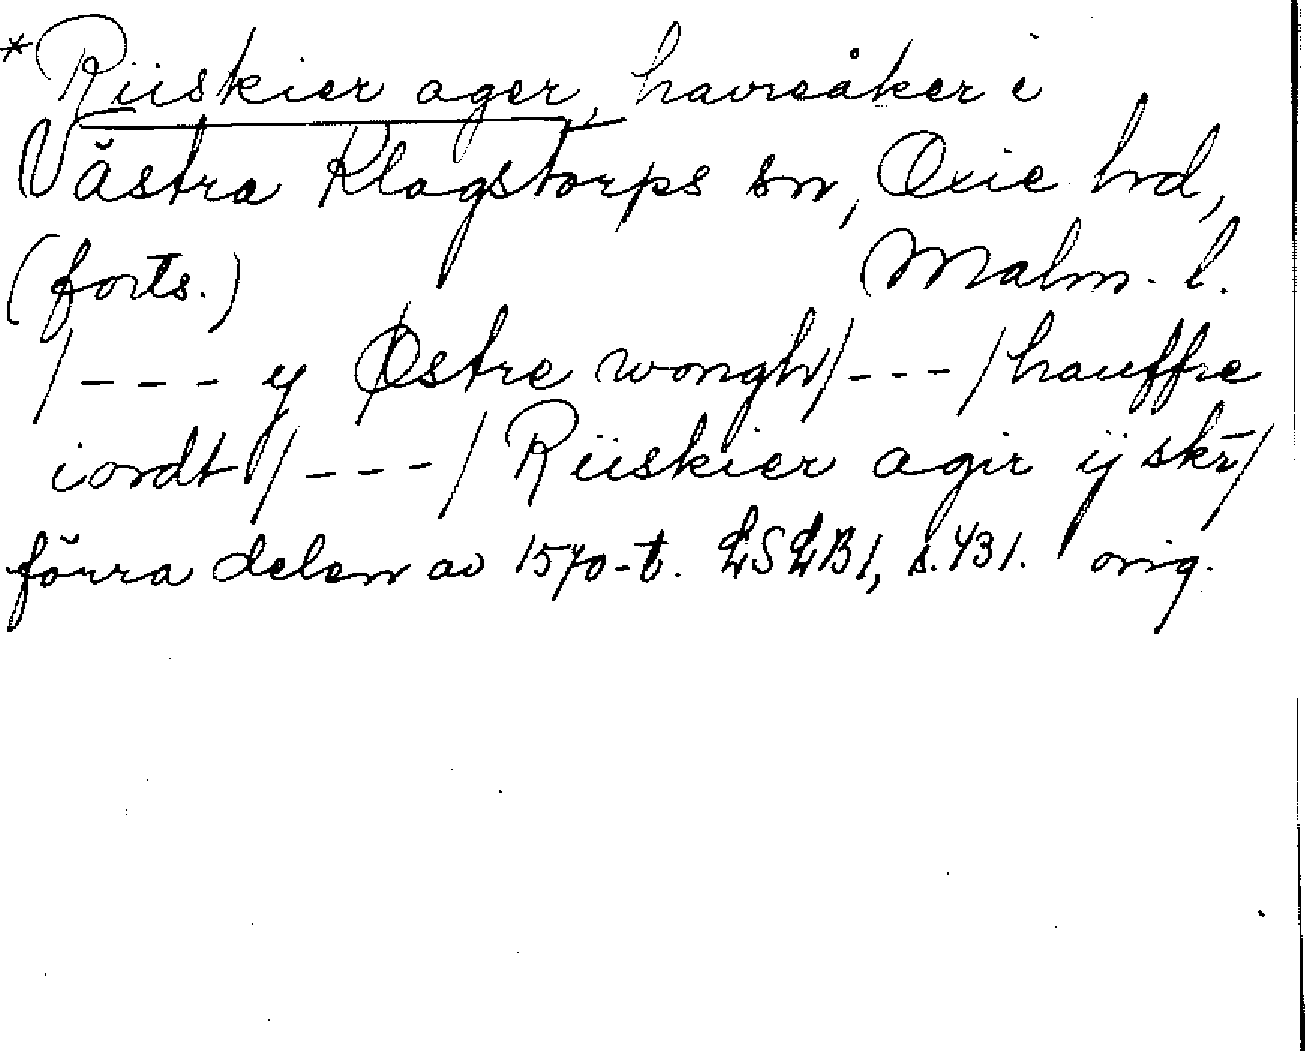 * Riiskier ager, havreåker i
Västra Klagstorps sn, Oxie hrd,
(forts.) Malm. l.
/--- y Østre wongh/---/hauffre
iordt/---/ Riiskier agir ij skr̄/
förra delen av 1570-t. LSLB1, s.431. orig.